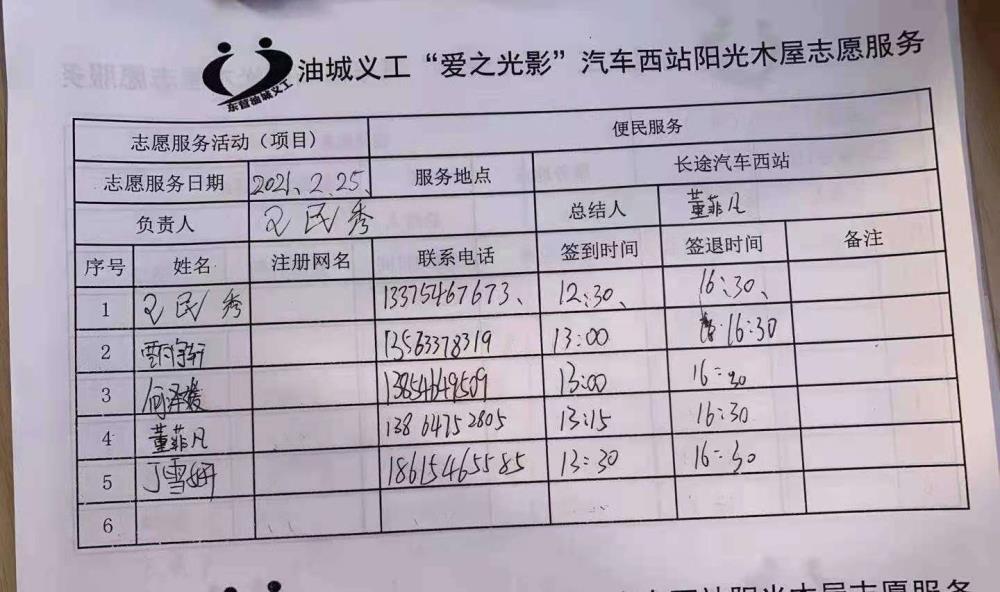 油城义工“爱之光影”汽车西站阳光木屋志愿服务
东营油城义工
志愿服务活动（项目） 便民服务
志愿服务日期 2021、2.25、 服务地点 长途汽车西站
负责人 民秀 总结人 董菲凡
序号 姓名 注册网名 联系电话 签到时间 签退时间 备注
1 民秀 13375467673、 12:30、 16:30、
2 13563378319 13:00 16:30
3 何泽媛 13854649509 13:00 16:30
4 董菲凡 13864752805 13:15 16:30
5 丁雪妍 18615465585 13:30 16:30
6
站阳光木屋志愿服务